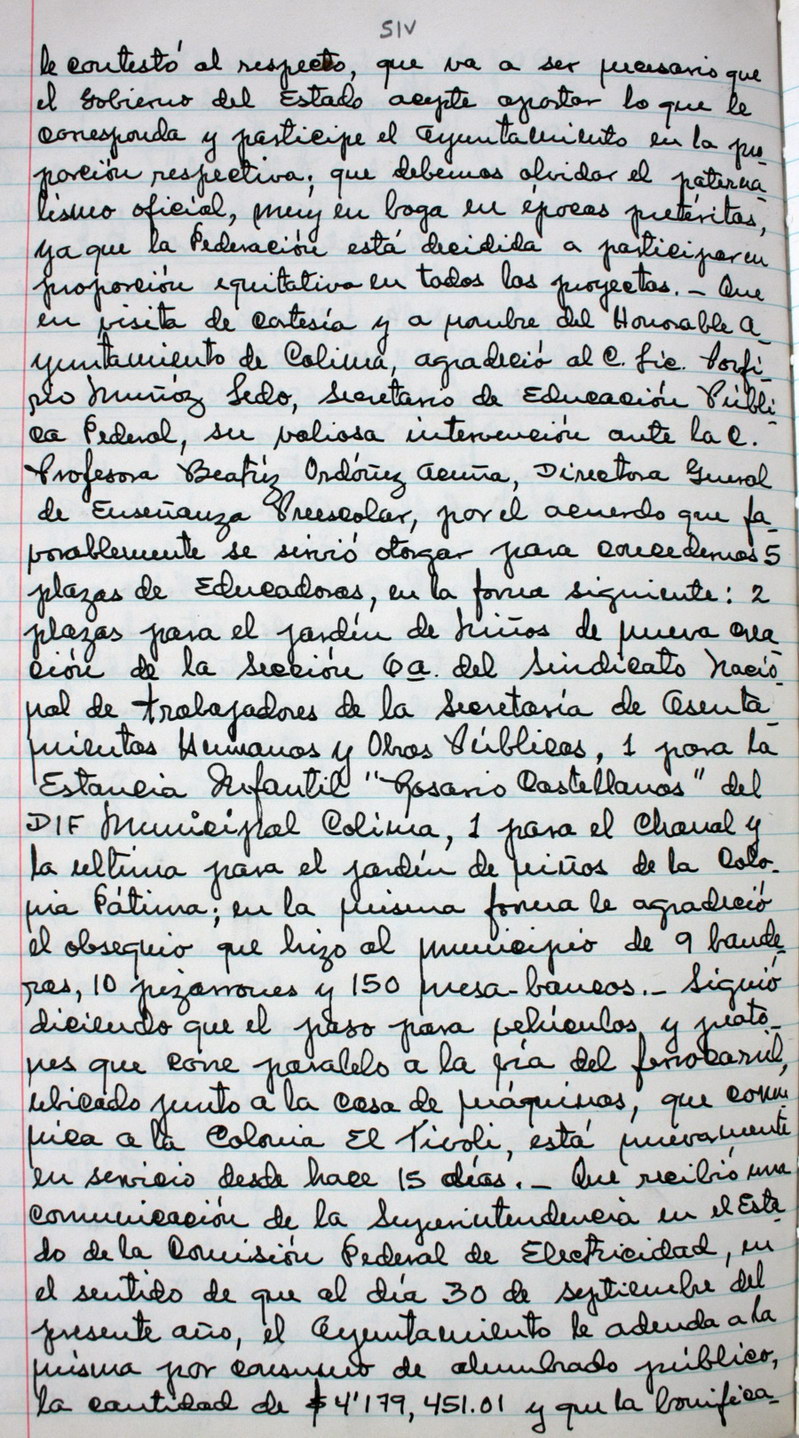 SIV
le contestó al respecto, que va a ser necesario que
el Gobierno del Estado acepte aportar lo que le
corresponda y participe el Ayuntamiento en la pro
porción respectiva; que debemos olvidar el paterna
lismo oficial, muy en boga en épocas pretéritas,
ya que la Federación está decidida a participar en
proporción equitativa en todos los proyectos.- Que
en visita de cortesía y a nombre del Honorable A
yuntamiento de Colima, agradeció al C. Lic. Porfi-
rio Muñóz Ledo, Secretario de Educación Públi
ca Federal, su valiosa intervención ante la C.
Profesora Beatriz Ordóñez Acuña, Directora General
de Enseñanza Preescolar, por el acuerdo que fa
vorablemente se sirvió otorgar para concedernos 5
plazas de Educadoras, en la forma siguiente: 2
plazas para el jardín de Niños de nueva crea
ción de la Sección 6a. del Sindicato Nacio
nal de trabajadores de la Secretaría de Asenta
mientos Humanos y Obras Públicas, 1 para la
Estancia Infantil "Rosario Castellanos" del
DIF Municipal Colima, 1 para el Chanal y
la ultima para el jardín de niños de la Colo-
nia Fátima; en la misma forma le agradeció
el obsequio que hizo al municipio de 9 bande
ras, 10 pizarrones y 150 mesa-bancos.- Siguió
diciendo que el paso para vehículos y peato-
nes que corre paralelo a la vía del ferrocarril,
ubicado junto a la casa de máquinas, que comu
nica a la Colonia El Tivoli, está nuevamente
en servicio desde hace 15 días.- Que recibió una
comunicación de la Superintendencia en el Esta
do de la Comisión Federal de Electricidad, en
el sentido de que al día 30 de septiembre del
presente año, el Ayuntamiento le adeuda a la
misma por consumo de alumbrado público,
la cantidad de $4'179,451.01 y que la bonifica-